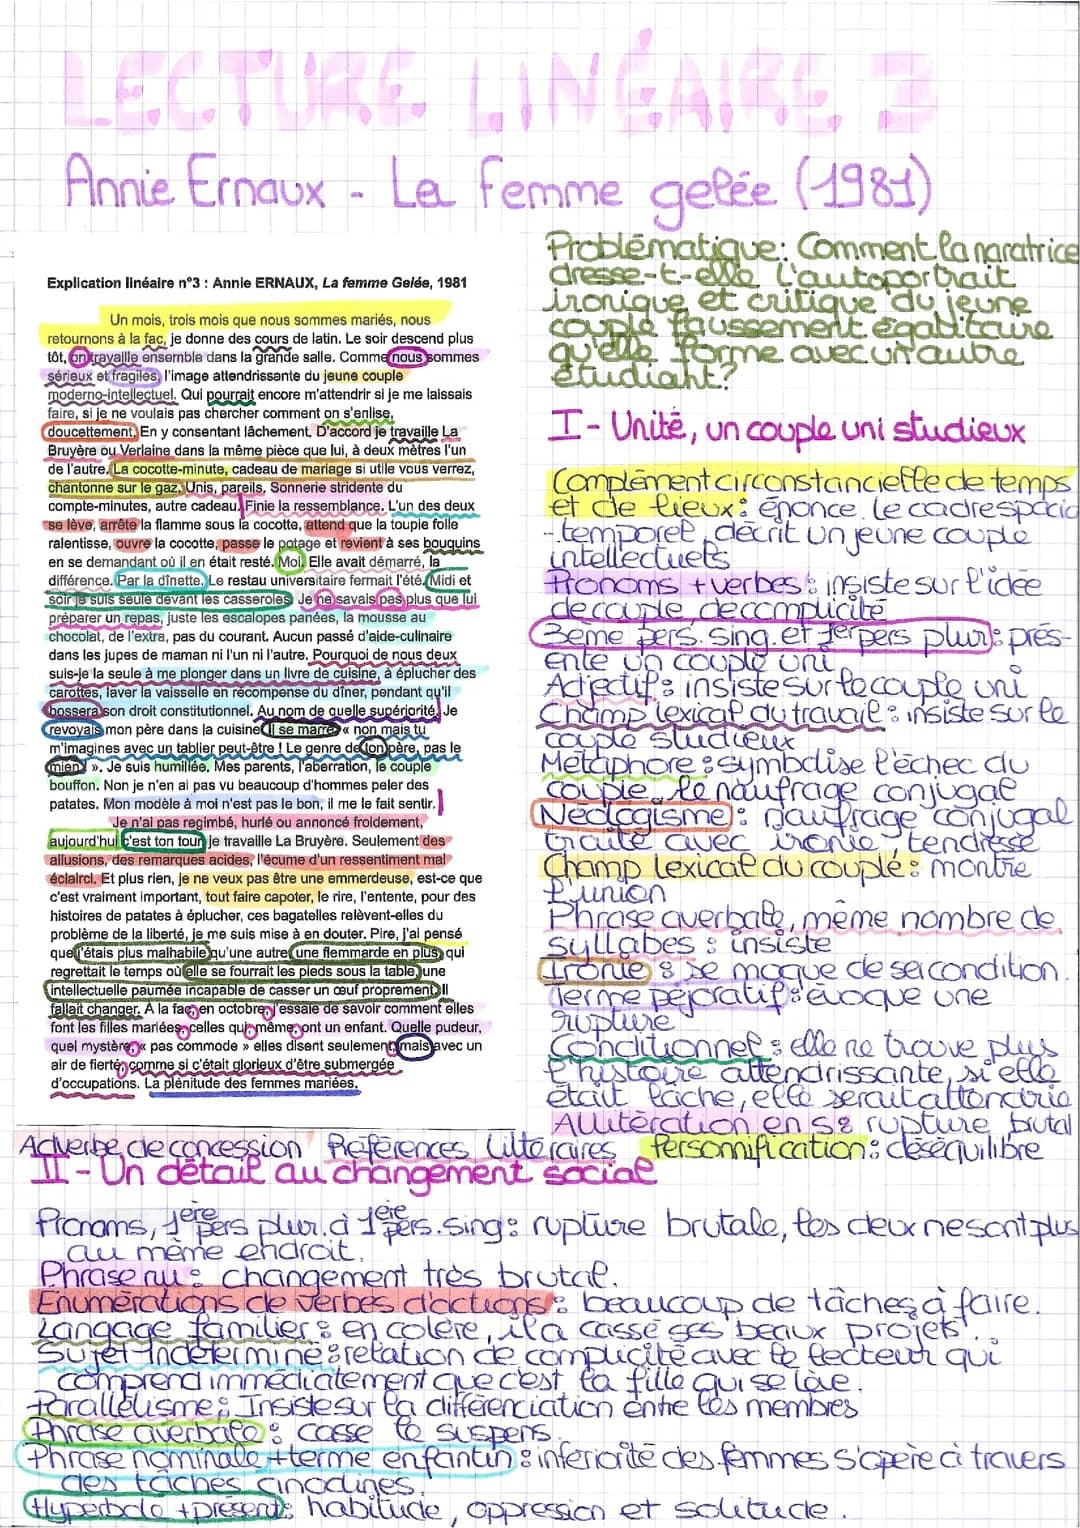 LECTURE LINÉAIRE 3
Annie Ernaux - La femme gelée (1981)
Explication linéaire n°3 : Annie ERNAUX, La femme Gelée, 1981
Un mois, trois mois que nous sommes mariés, nous
retournons à la fac, je donne des cours de latin. Le soir descend plus
tôt, on travaille ensemble dans la grande salle. Comme nous sommes
sérieux et fragiles, l'image attendrissante du jeune couple
moderno-intellectuel. Qui pourrait encore m'attendrir si je me laissais
faire, si je ne voulais pas chercher comment on s'enlise,
doucettement. En y consentant lâchement. D'accord je travaille La
Bruyère ou Verlaine dans la même pièce que lui, à deux mètres l'un
de l'autre. La cocotte-minute, cadeau de mariage si utile vous verrez,
chantonne sur le gaz. Unis, pareils. Sonnerie stridente du
compte-minutes, autre cadeau. Finie la ressemblance. L'un des deux
se lève, arrête la flamme sous la cocotte, attend que la toupie folle
ralentisse, ouvre la cocotte, passe le potage et revient à ses bouquins
en se demandant où il en était resté. Moi. Elle avait démarré, la
différence. Par la dînette. Le restau universitaire fermait l'été. Midi et
soir je suis seule devant les casseroles. Je ne savais pas plus que lui
préparer un repas, juste les escalopes panées, la mousse au
chocolat, de l'extra, pas du courant. Aucun passé d'aide-culinaire
dans les jupes de maman ni l'un ni l'autre. Pourquoi de nous deux
suis-je la seule à me plonger dans un livre de cuisine, à éplucher des
carottes, laver la vaisselle en récompense du dîner, pendant qu'il
bossera son droit constitutionnel. Au nom de quelle supériorité. Je
revoyais mon père dans la cuisine. Il se marre « non mais tu
m'imagines avec un tablier peut-être ! Le genre de ton père, pas le
mien ! ». Je suis humiliée. Mes parents, l'aberration, le couple
bouffon. Non je n'en ai pas vu beaucoup d'hommes peler des
patates. Mon modèle à moi n'est pas le bon, il me le fait sentir.
Je n'ai pas regimbé, hurlé ou annoncé froidement,
aujourd'hui c'est ton tour, je travaille La Bruyère. Seulement des
allusions, des remarques acides, l'écume d'un ressentiment mal
éclairci. Et plus rien, je ne veux pas être une emmerdeuse, est-ce que
c'est vraiment important, tout faire capoter, le rire, l'entente, pour des
histoires de patates à éplucher, ces bagatelles relèvent-elles du
problème de la liberté, je me suis mise à en douter. Pire, j'ai pensé
que j'étais plus malhabile qu'une autre, une flemmarde en plus, qui
regrettait le temps où elle se fourrait les pieds sous la table, une
intellectuelle paumée incapable de casser un œuf proprement. Il
fallait changer. A la fac, en octobre, j'essaie de savoir comment elles
font les filles mariées, celles qui, même, ont un enfant. Quelle pudeur,
quel mystère, « pas commode » elles disent seulement, mais avec un
air de fierté, comme si c'était glorieux d'être submergée
d'occupations. La plénitude des femmes mariées.
Problématique : Comment la naratrice
dresse-t-elle l'autoportrait
ironique et critique du jeune
couple faussement égalitaire
qu'elle forme avec un autre
étudiant?
I - Unité, un couple uni studieux
Complément circonstancielle de temps
et de lieux : énonce le cadre spacio
-temporel, décrit un jeune couple
intellectuels
Pronoms + verbes : insiste sur l'idée
de couple, de complicité
3eme pers. sing. et 1er pers plur : prés-
ente un couple uni
Adjectif : insiste sur le couple uni
Champ lexical du travail : insiste sur le
couple studieux
Métaphore : symbolise l'échec du
couple, le naufrage conjugal
Néologisme : naufrage conjugal
traité avec ironie, tendresse
Champ lexical du couple : montre
l'union
Phrase averbale, même nombre de
syllabes : insiste
Ironie : se moque de sa condition.
Terme péjoratif : évoque une
rupture
Conditionnel : elle ne trouve plus
l'histoire attendrissante, si elle
était lâche, elle serait attendrie
Allitération en s : rupture brutal
Adverbe de concession Références littéraires Personnification : déséquilibre
II - Un détail au changement social
Pronoms, 1ère pers plur. à 1ère pers. sing : rupture brutale, les deux ne sont plus
au même endroit.
Phrase nu : changement très brutal.
Enumérations de verbes d'actions : beaucoup de tâches à faire.
Langage familier : en colère, il a cassé ses beaux projets.
Sujet indéterminé : relation de complicité avec le lecteur qui
comprend immédiatement que c'est la fille qui se lève.
Parallélisme : Insiste sur la différenciation entre les membres
Phrase averbale : casse le suspens.
Phrase nominale + terme enfantin : inferiorité des femmes s'opère à travers
des tâches anodines.
Hyperbole + présent : habitude, oppression et solitude.